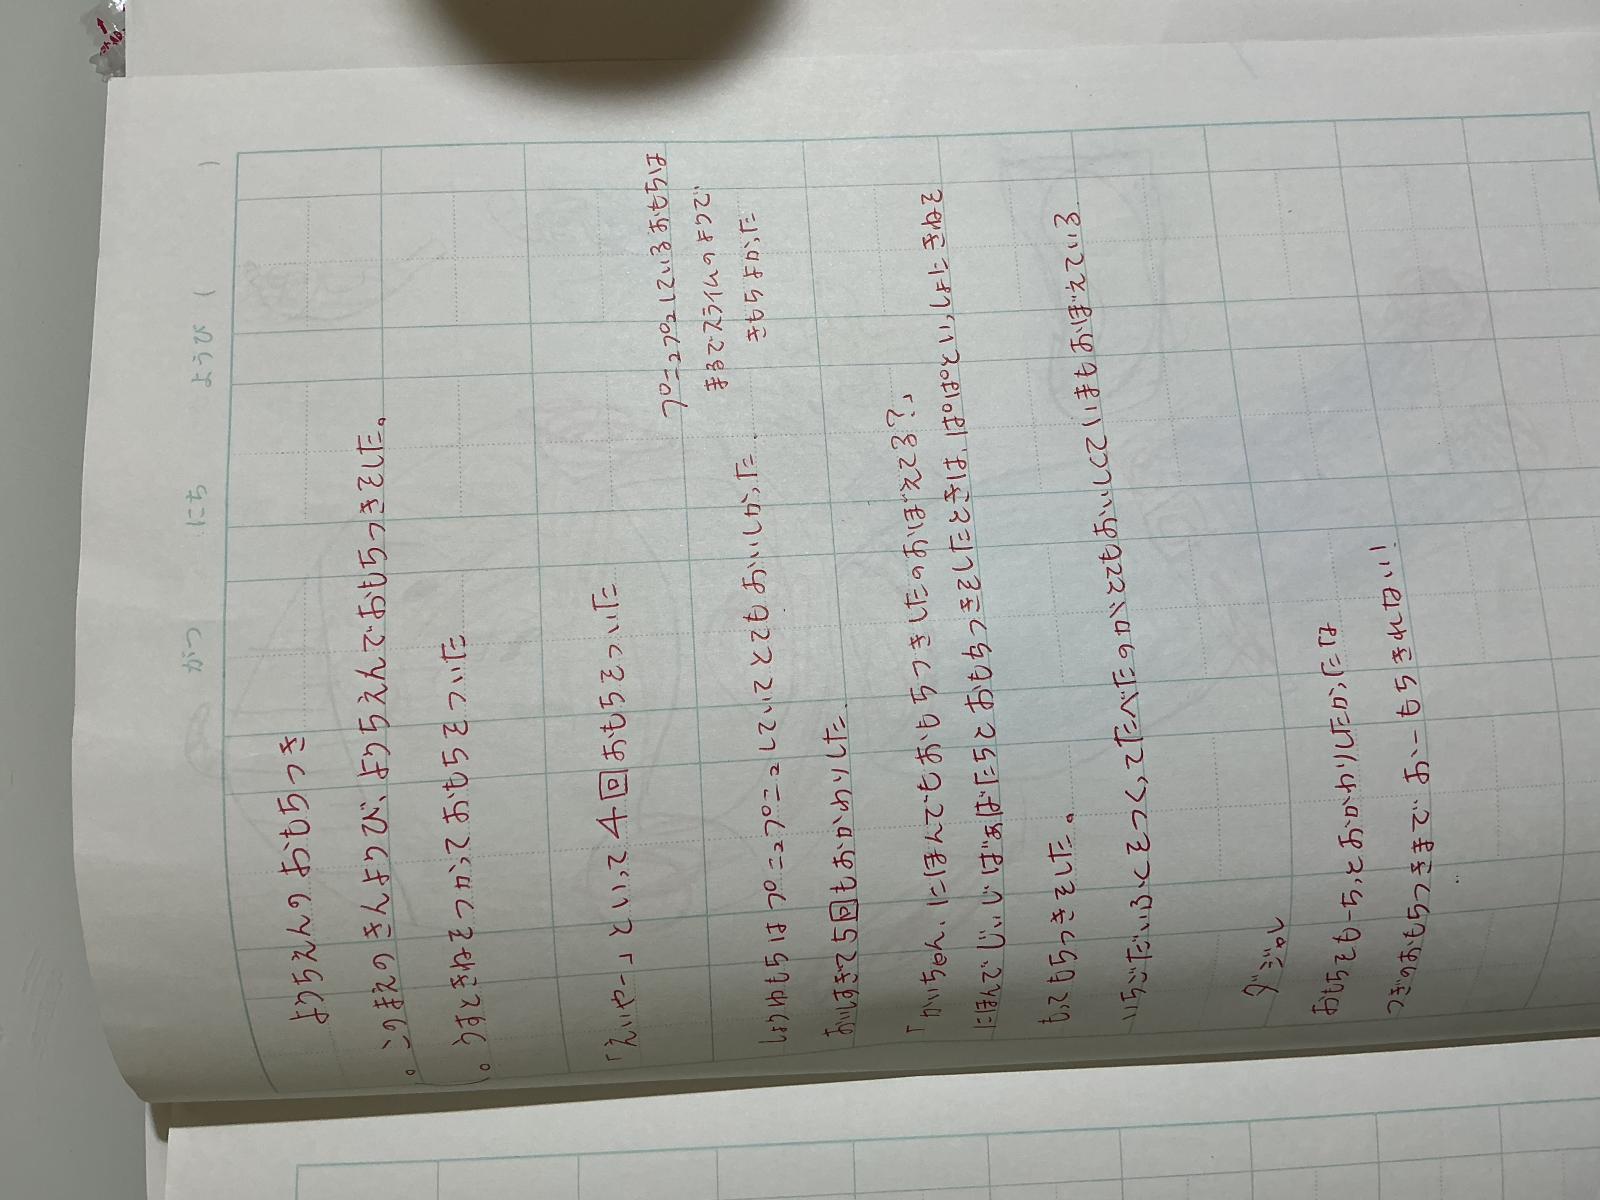 がつ にち ようび ( )
ようちえんのおもちつき
。このまえのきんようび、ようちえんでおもちつきをした。
。うすときねをつかっておもちをついた
「えいやー」といって4回おもちをついた
しょうゆもちはプニュプニュしていてとてもおいしかった
プニュプュしているおもちは
まるでスライムのようで
きもちよかった
おいしすぎて5回もおかわりした
「かいちゃん、にほんでもおもちつきしたのおぼえてる?」
にほんでじいじばあばたちとおもちつきをしたときは、ぱぱといっしょにきねを
もってもちつきをした。
いちごだいふくをつくってたべたのがとてもおいしくていまもおぼえている
ダジャレ
おもちをもーちっとおかわりしたかったな
つぎのおもちつきまでおーもちきれない!